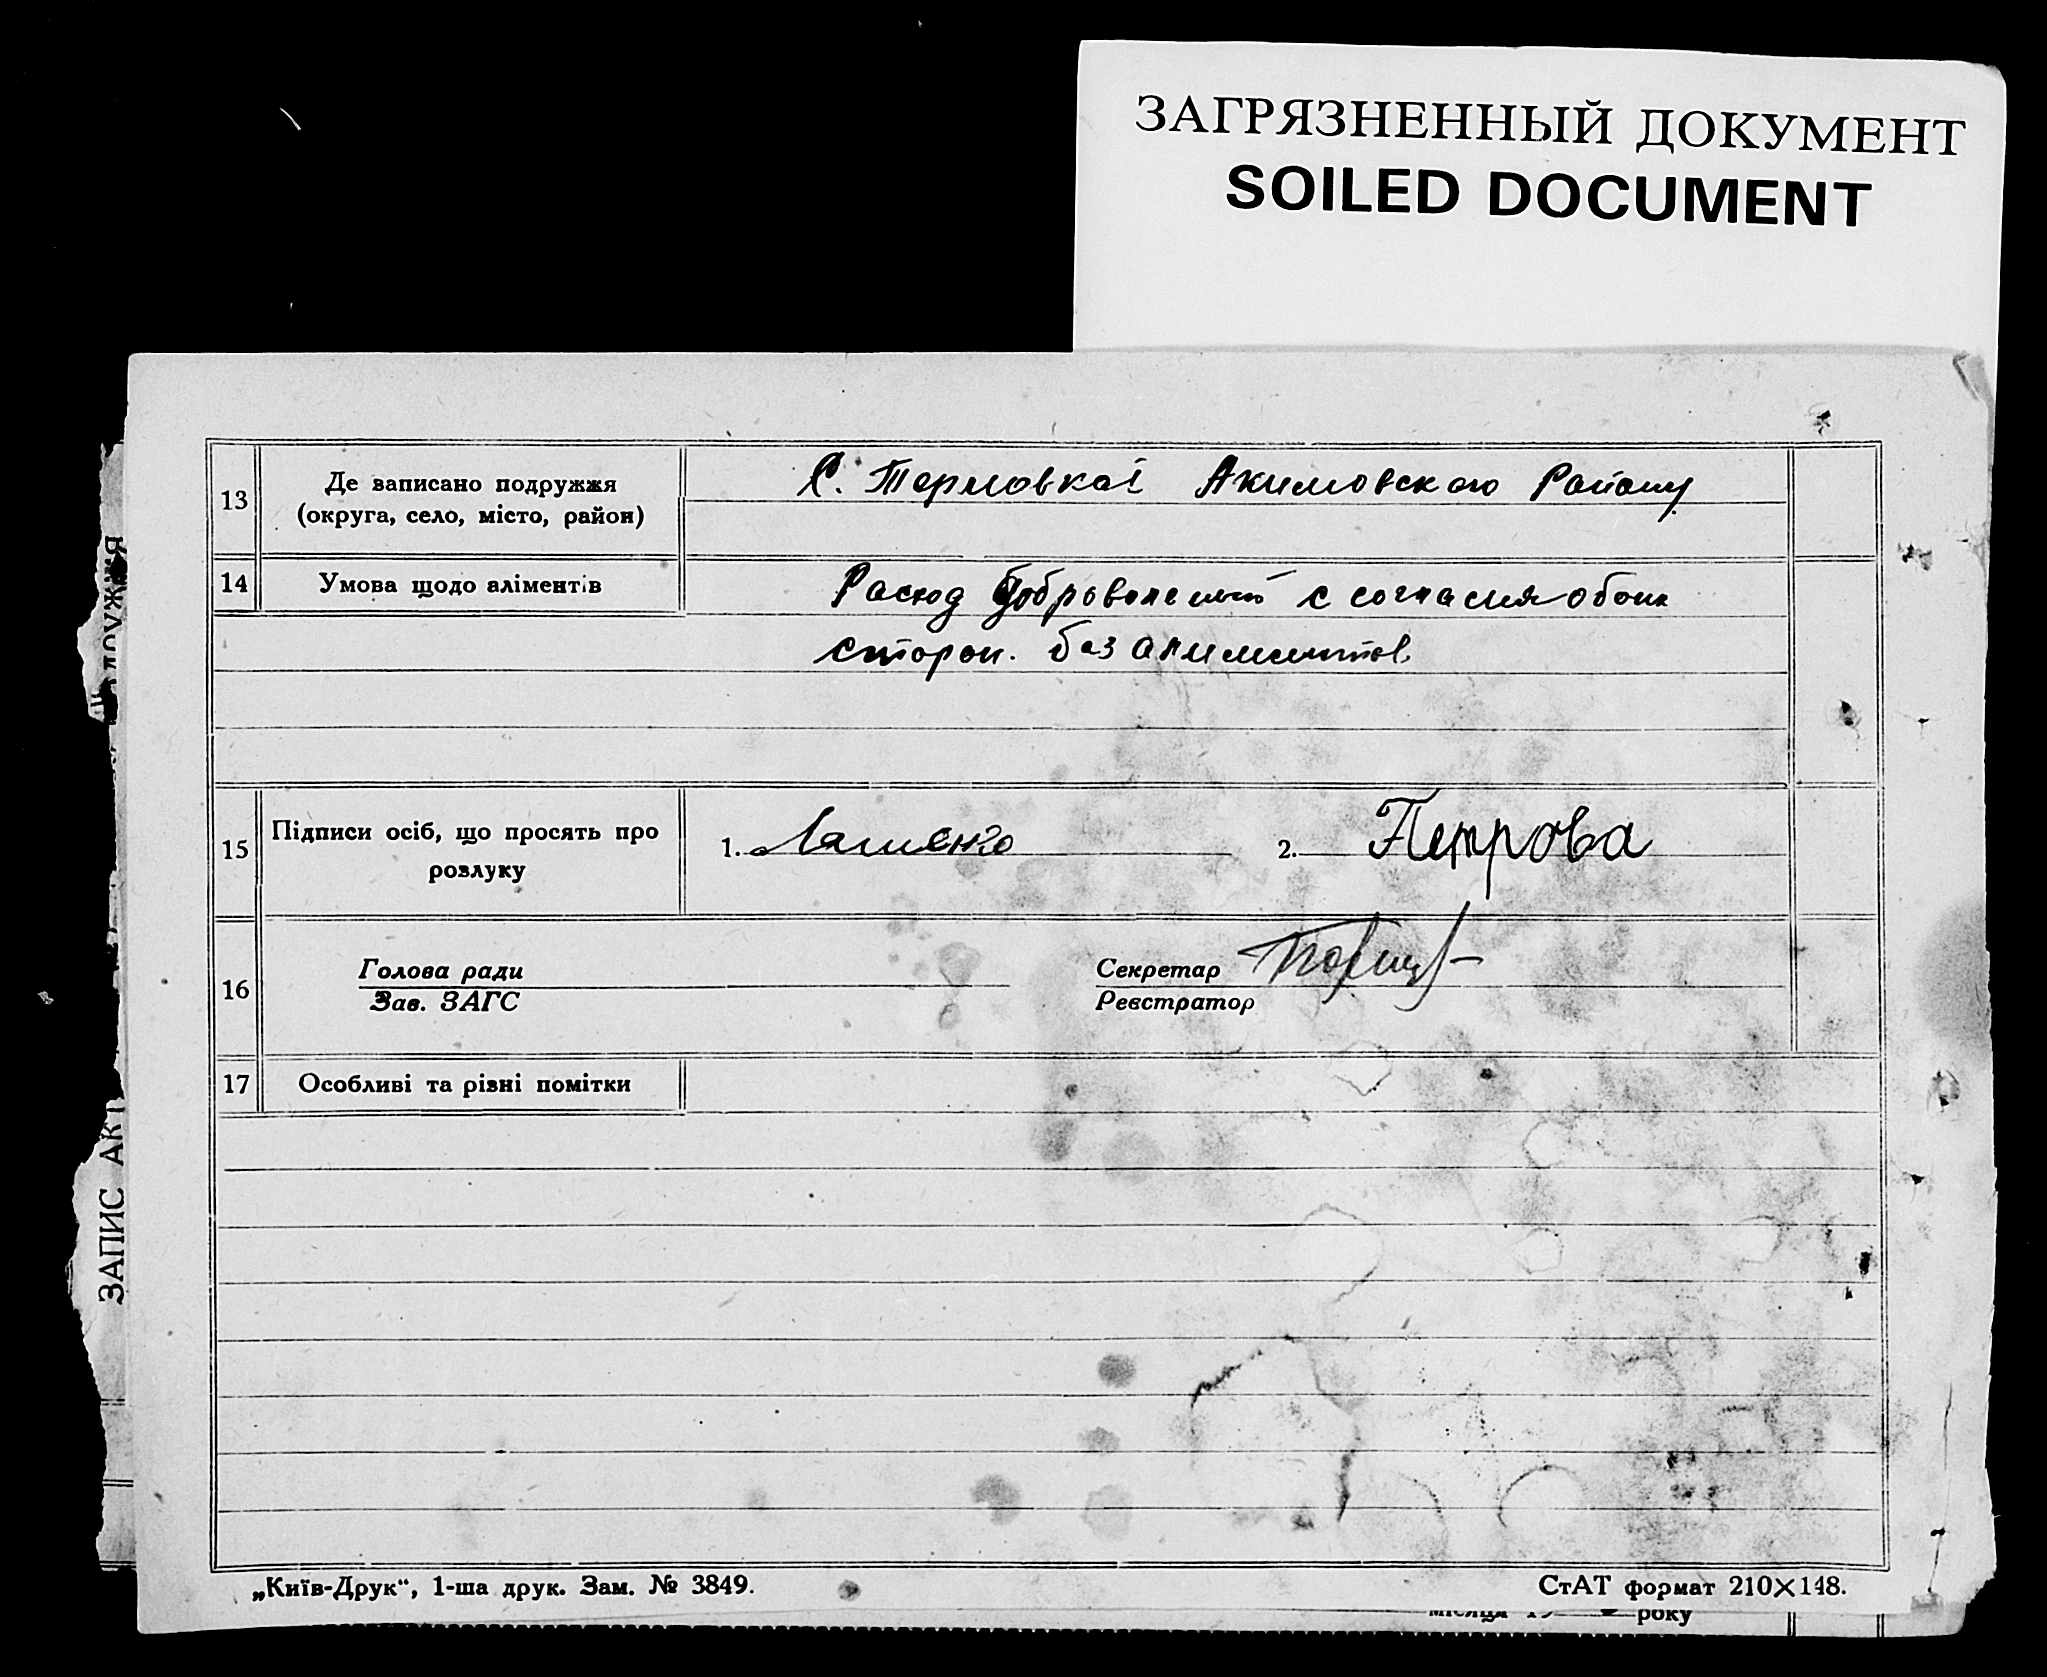 ЗАГРЯЗНЕННЫЙ ДОКУМЕНТ
SOILED DOCUMENT
13 Де записано подружжя
(округа, село, місто, район)
С. Терновкаі Акимовского Району
14 Умова щодо аліментів
Расход добровольный с согласия обоих
сторон. без алиментов
15 Підписи осіб, що просять про
розлуку
1. Ляшенко 2. Петрова
16 Голова ради
Зав. ЗАГС
Секретар
Реєстратор
17 Особливі та різні помітки
„Київ-Друк“, 1-ша друк. Зам. № 3849.
СтАТ формат 210×148.
місяця 19 року
ЗАПИС АКТ